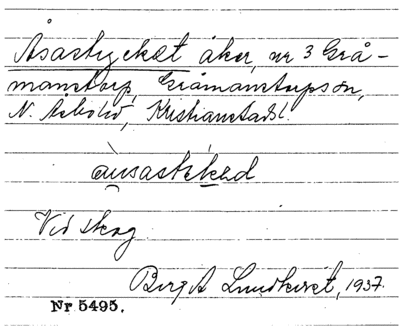 Åsastycket åker, nr 3 Grå-
manstorp, Gråmanstorps sn,
N. Åsbo hd, Kristianstads l.
Vid skog
Birgit Lundkvist, 1937.
Nr 5495.